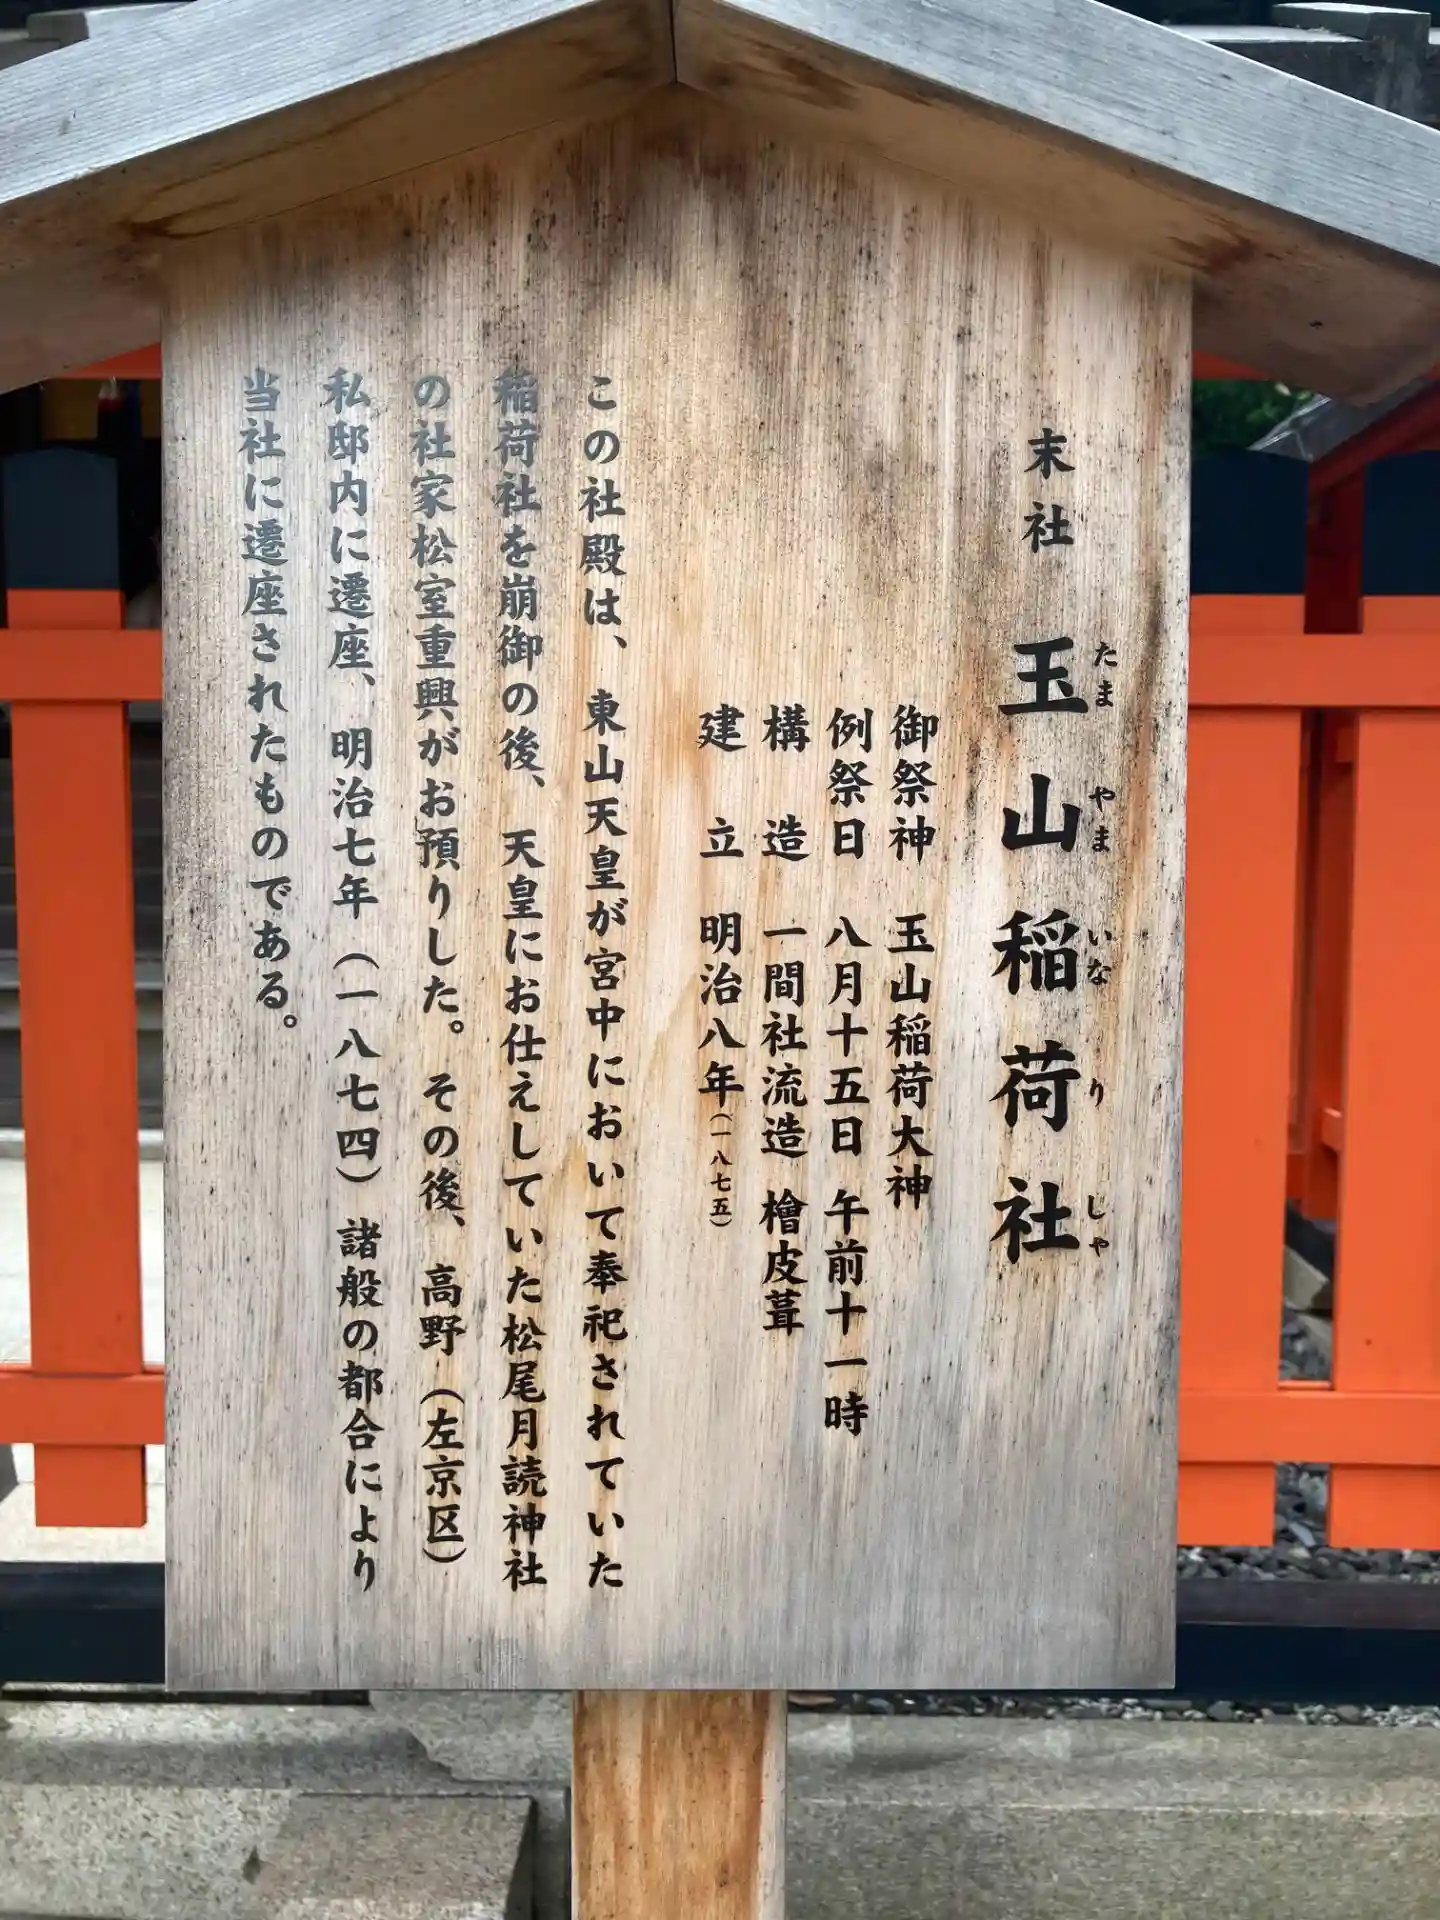 末社 玉山稲荷社
たまやまいなりしゃ
御祭神 玉山稲荷大神
例祭日 八月十五日 午前十一時
構造 一間社流造 檜皮葺
建立 明治八年(一八七五)
この社殿は、東山天皇が宮中において奉祀されていた
稲荷社を崩御の後、天皇にお仕えしていた松尾月読神社
の社家松室重興がお預りした。その後、高野(左京区)
私邸内に遷座、明治七年(一八七四)諸般の都合により
当社に遷座されたものである。